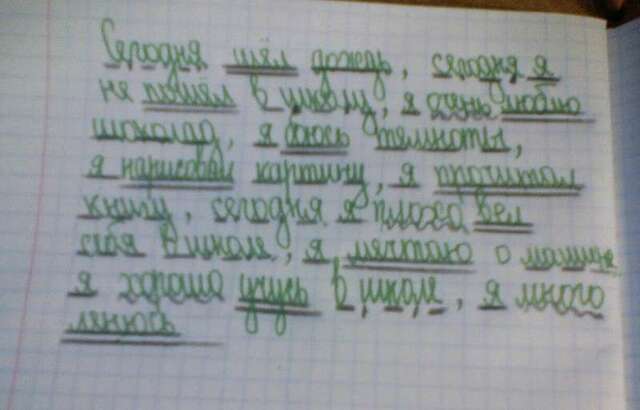 Сегодня шёл дождь, сегодня я
не пошёл в школу, я очень люблю
шоколад, я боюсь темноты,
я нарисовал картину, я прочитал
книгу, сегодня я плохо вел
себя в школе, я мечтаю о машине
я хорошо учусь в школе, я много
ленюсь